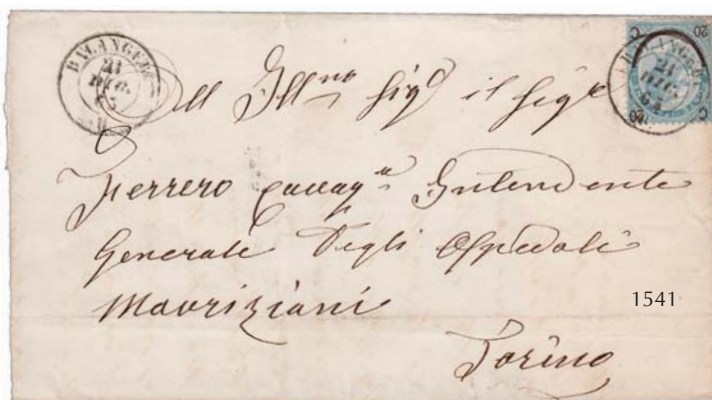 BALANGERO
21
DIC.
65
BALANGERO
21
DIC.
65
20
C
20
C
All Ill.mo Sig.r il Sig.e
Ferrero Intendente
Generale degli Ospedali
Mauriziani
1541
Torino